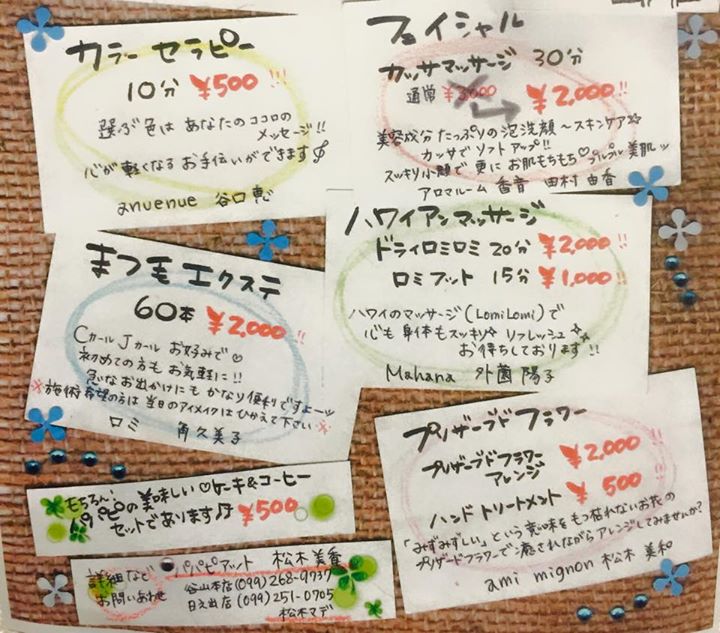 カラーセラピー
10分 ¥500!!
選ぶ色は あなたのココロの
メッセージ!!
心が軽くなる お手伝いができます
anuenue 谷口恵
フェイシャル
カッサマッサージ 30分
通常 ¥3,000 → ¥2,000!!
美容成分 たっぷりの泡洗顔〜スキンケア☆
カッサでリフトアップ!!
スッキリ小顔で 更に お肌もちもち♡プルプル美肌ッ
アロマルーム 香音 田村 由香
まつ毛エクステ
60本 ¥2,000!!
Cカール Jカール お好みで♡
初めての方も お気軽に!!
急なお出かけにも かなり便利ですよーッ
※施術希望の方は 当日のアイメイクはひかえて下さい※
ロミ 角久美子
ハワイアンマッサージ
ドライロミロミ 20分 ¥2,000!!
ロミフット 15分 ¥1,000!!
ハワイのマッサージ(LomiLomi)で
心も身体もスッキリ☆ リフレッシュ☆
お待ちしております!!
Mahana 外薗 陽子
プリザーブドフラワー
プリザーブドフラワー
アレンジ ¥2,000!!
ハンドトリートメント ¥500
「みずみずしい」という意味をもつ枯れないお花の
プリザーブドフラワーで癒されながらアレンジしてみませんか?
ami mignon 松木 美和
もちろん!
パピの美味しい♡ケーキ&コーヒー
セットであります♬ ¥500
詳細など
お問いあわせ
パパピアット 松木美香
谷山本店(099)268-9737
日之出店(099)251-0705
松木マデ